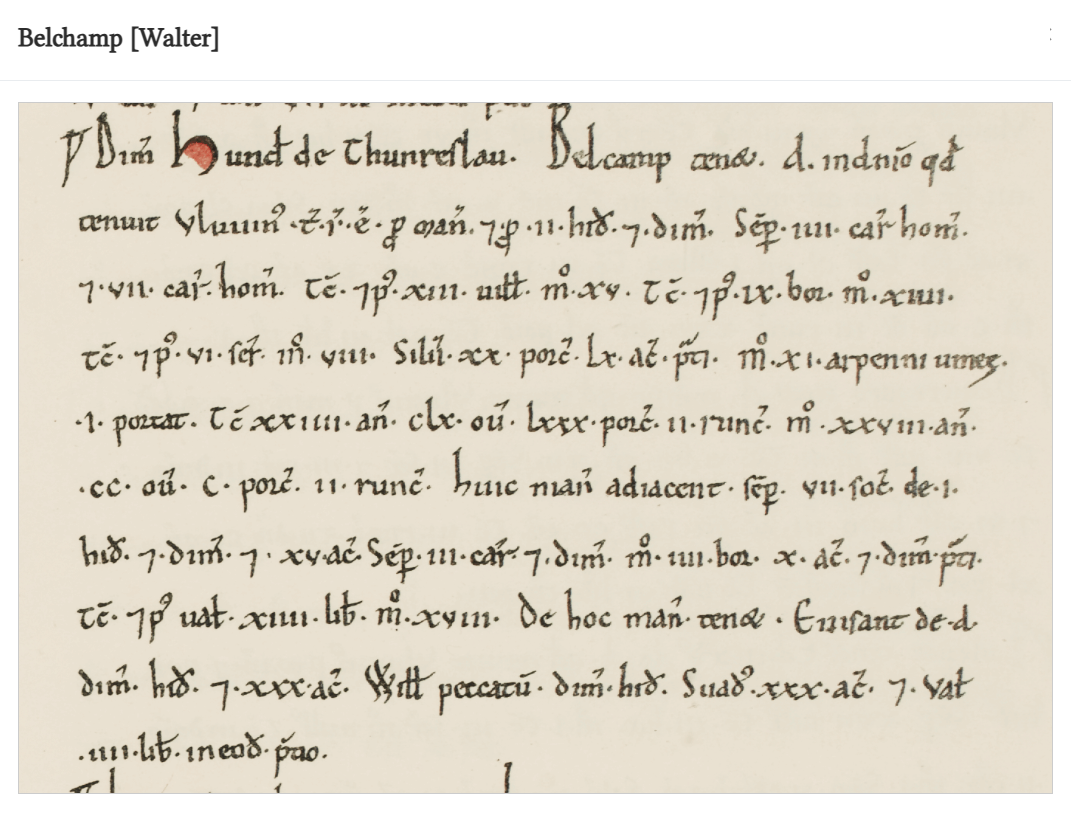 Belchamp [Walter]
Dim̄ hund̄ de Thunreslau. Belcamp ten&. A. indn̄io qd̄
tenuit Vluuin᷒ ·t̄·r̄·ē· ꝑ man̄. ⁊ ꝓ ·ii· hid̄· ⁊·dim̄. Sēꝑ· iiii· car̄ hom̄.
⁊·vii· car̄· hom̄. Tc̄· ⁊p᷒·xiii· uilł· m̊·xv· Tc̄· ⁊p᷒·ix· bor· m̊·xiiii·
tc̄· ⁊p᷒· vi· ser̄· m̊· viii· Silū· xx· porc̄· lx· ac̄· p̄ti· m̊·xi· arpenni uineꝝ.
·i· portat· Tc̄ xxiiii· an̄· clx· oū· lxxx· porc̄· ii· runc̄· m̊·xxviii· an̄·
·cc· oū· c· porc̄· ii· runc̄· huic man̄ adiacent· sēꝑ· vii· soc̄· de·i·
hid̄· ⁊·dim̄· ⁊· xv· ac̄· Sēꝑ· iii· car̄· ⁊·dim̄· m̊· iiii· bor· x· ac̄· ⁊·dim̄· p̄ti·
Tc̄· ⁊p᷒ uał· xiiii· lib̄· m̊·xviii· De hoc man̄· ten& · Enisant de·A·
dim̄· hid̄· ⁊·xxx·ac̄· Wilł peccatū· dim̄·hid̄· Suað·xxx·ac̄· ⁊· Vał
·iiii·lib̄· in eod̄· p̄tio·